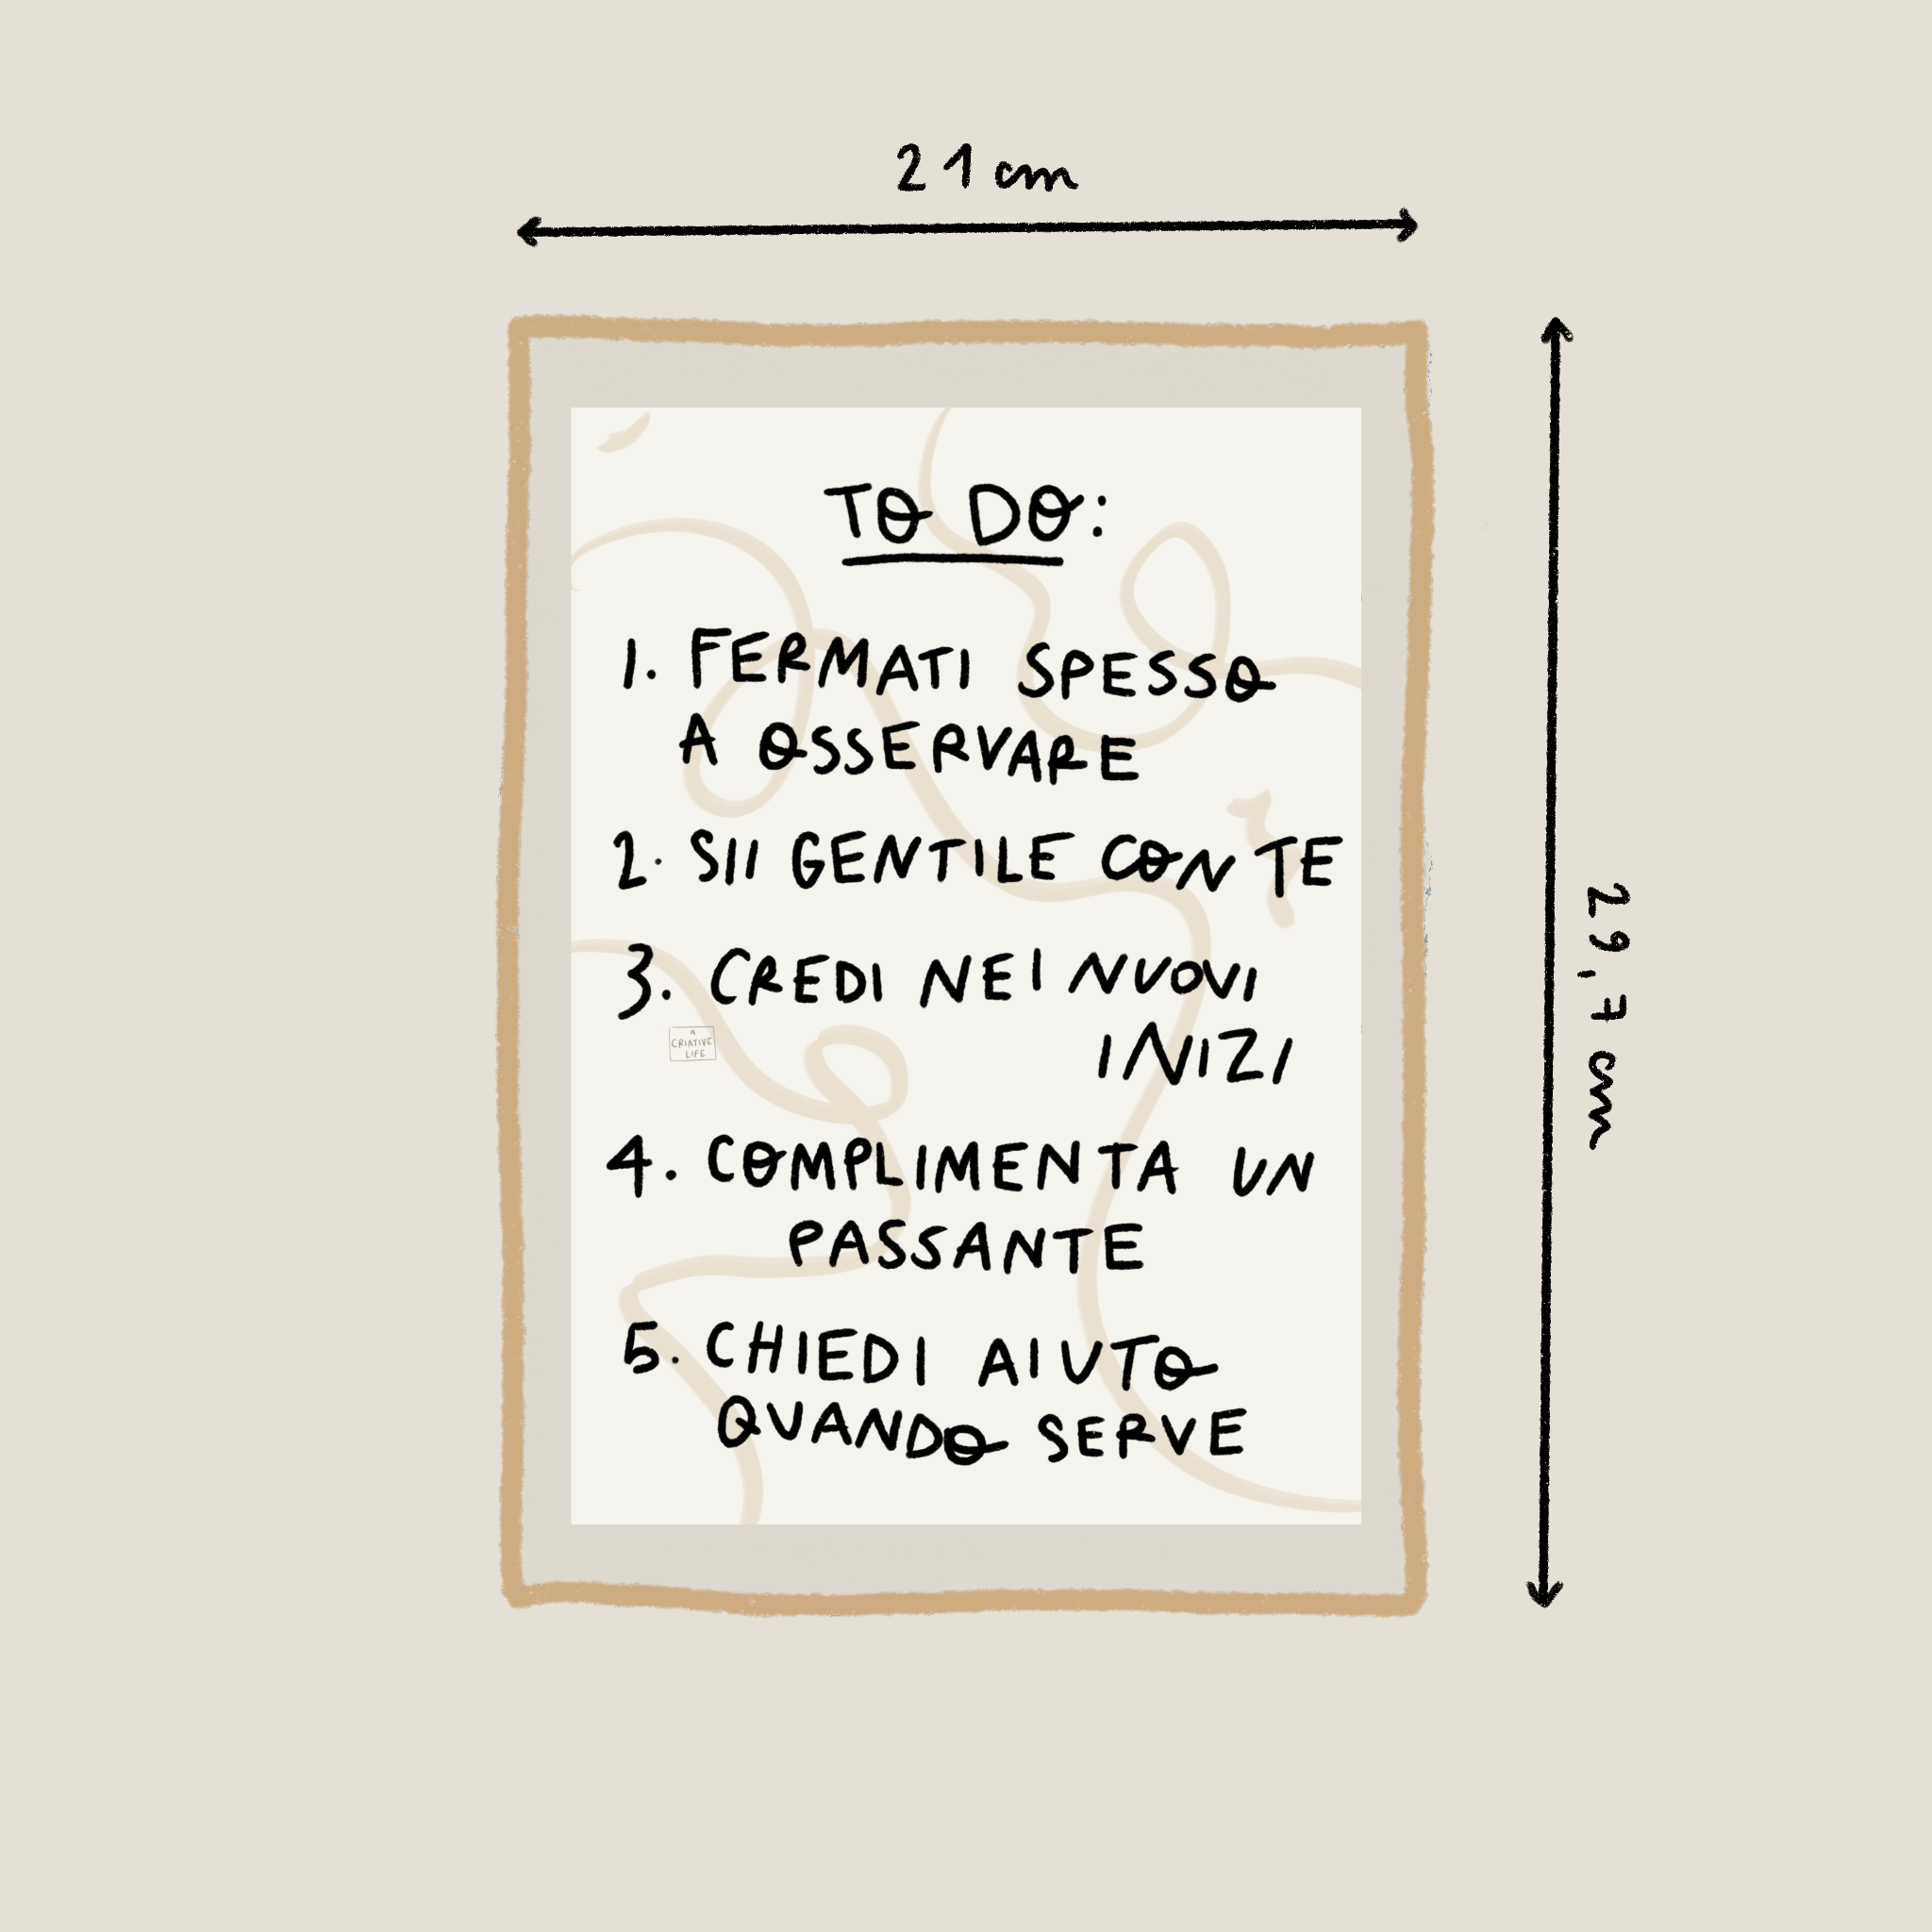 21 cm
TO DO:
1. FERMATI SPESSO
A OSSERVARE
2. SII GENTILE CON TE
3. CREDI NEI NUOVI
INIZI
A
CRIATIVE
LIFE
4. COMPLIMENTA UN
PASSANTE
5. CHIEDI AIUTO
QUANDO SERVE
29,7 cm